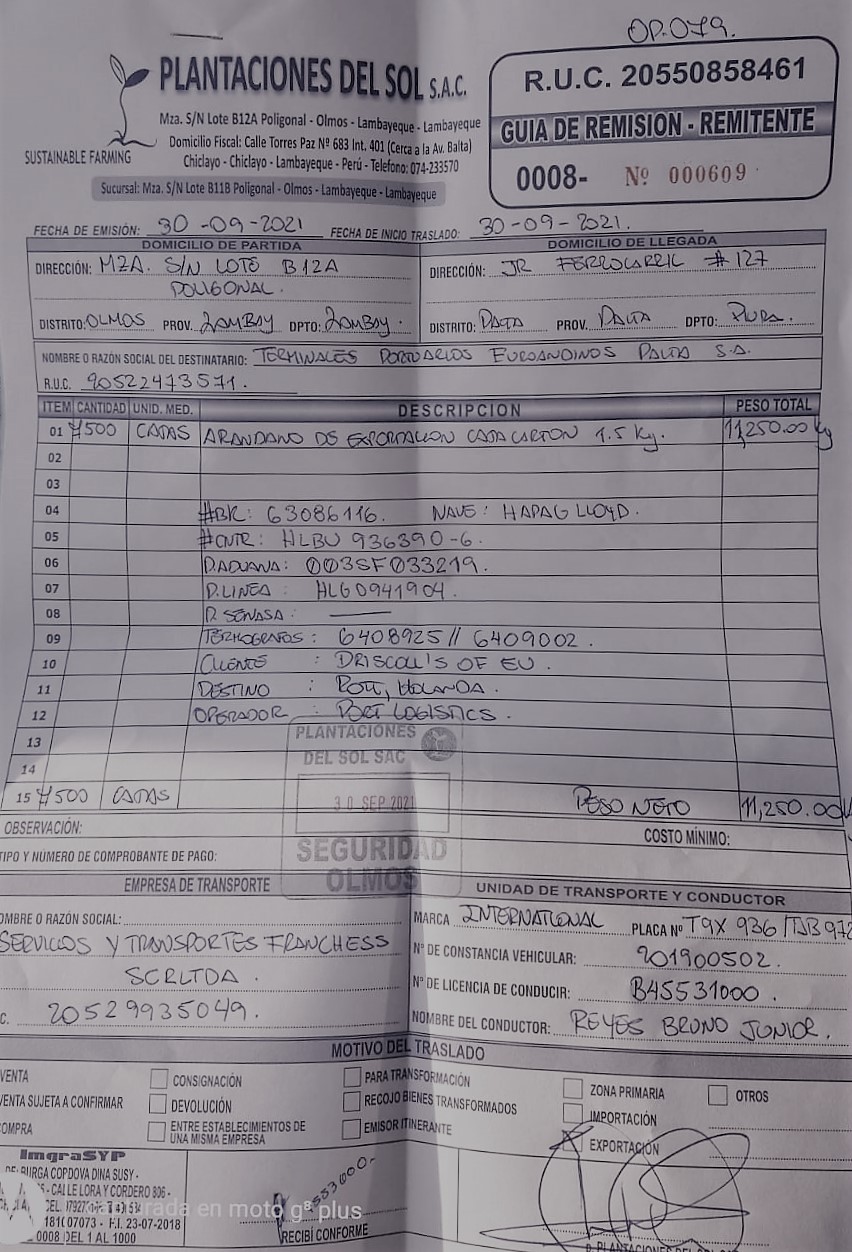 OP.079.
PLANTACIONES DEL SOL S.A.C.
Mza. S/N Lote B12A Poligonal - Olmos - Lambayeque - Lambayeque
Domicilio Fiscal: Calle Torres Paz Nº 683 Int. 401 (Cerca a la Av. Balta)
Chiclayo - Chiclayo - Lambayeque - Perú - Telefono: 074-233570
SUSTAINABLE FARMING
Sucursal: Mza. S/N Lote B11B Poligonal - Olmos - Lambayeque - Lambayeque
R.U.C. 20550858461
GUIA DE REMISION - REMITENTE
0008- Nº 000609
FECHA DE EMISIÓN: 30-09-2021 FECHA DE INICIO TRASLADO: 30-09-2021.
DOMICILIO DE PARTIDA
DIRECCIÓN: MZA. S/N LOTE B12A
POLIGONAL.
DISTRITO: OLMOS PROV. LAMBAY DPTO: LAMBAY.
DOMICILIO DE LLEGADA
DIRECCIÓN: JR FERROCARRIL # 127
DISTRITO: PAITA PROV. PAITA DPTO: PIURA.
NOMBRE O RAZÓN SOCIAL DEL DESTINATARIO: TERMINALES PORTUARIOS EUROANDINOS PAITA S.A.
R.U.C. 20522473571.
ITEM CANTIDAD UNID. MED. DESCRIPCION PESO TOTAL
01 7500 CAJAS ARANDANO DE EXPORTACION CAJA CARTON 1.5 Kg. 11,250.00 Kg
02
03
04 #BK: 63086116. NAVE: HAPAG LLOYD.
05 #CNTR: HLBU 936390-6.
06 P.ADUANA: 003SF033219.
07 P.LINEA: HLG0941904.
08 P. SENASA:
09 TERMOGRAFOS: 6408925 // 6409002.
10 CLIENTE : DRISCOLL'S OF EU.
11 DESTINO : ROTT, HOLANDA.
12 OPERADOR : PORT LOGISTICS.
13
14
15 7500 CAJAS PESO NETO 11,250.00
PLANTACIONES
DEL SOL SAC
30 SEP 2021
SEGURIDAD
OLMOS
OBSERVACIÓN:
COSTO MÍNIMO:
TIPO Y NÚMERO DE COMPROBANTE DE PAGO:
EMPRESA DE TRANSPORTE
OMBRE O RAZÓN SOCIAL:
SERVICIOS Y TRANSPORTES FRANCHESS
SCRLTDA.
C. 20529935049.
UNIDAD DE TRANSPORTE Y CONDUCTOR
MARCA INTERNATIONAL PLACA Nº T9X 936 / TJB 972
Nº DE CONSTANCIA VEHICULAR: 201900502.
Nº DE LICENCIA DE CONDUCIR: B45531000.
NOMBRE DEL CONDUCTOR: REYES BRUNO JUNIOR.
MOTIVO DEL TRASLADO
VENTA
VENTA SUJETA A CONFIRMAR
COMPRA
CONSIGNACIÓN
DEVOLUCIÓN
ENTRE ESTABLECIMIENTOS DE
UNA MISMA EMPRESA
PARA TRANSFORMACIÓN
RECOJO BIENES TRANSFORMADOS
EMISOR ITINERANTE
ZONA PRIMARIA
IMPORTACIÓN
EXPORTACIÓN
OTROS
ImgraSYP
DE: BURGA CORDOVA DINA SUSY -
- CALLE LORA Y CORDERO 806 -
F.I. 23-07-2018
0008 DEL 1 AL 1000
RECIBÍ CONFORME
en moto g⁸ plus
P. PLANTACIONES DEL SOL